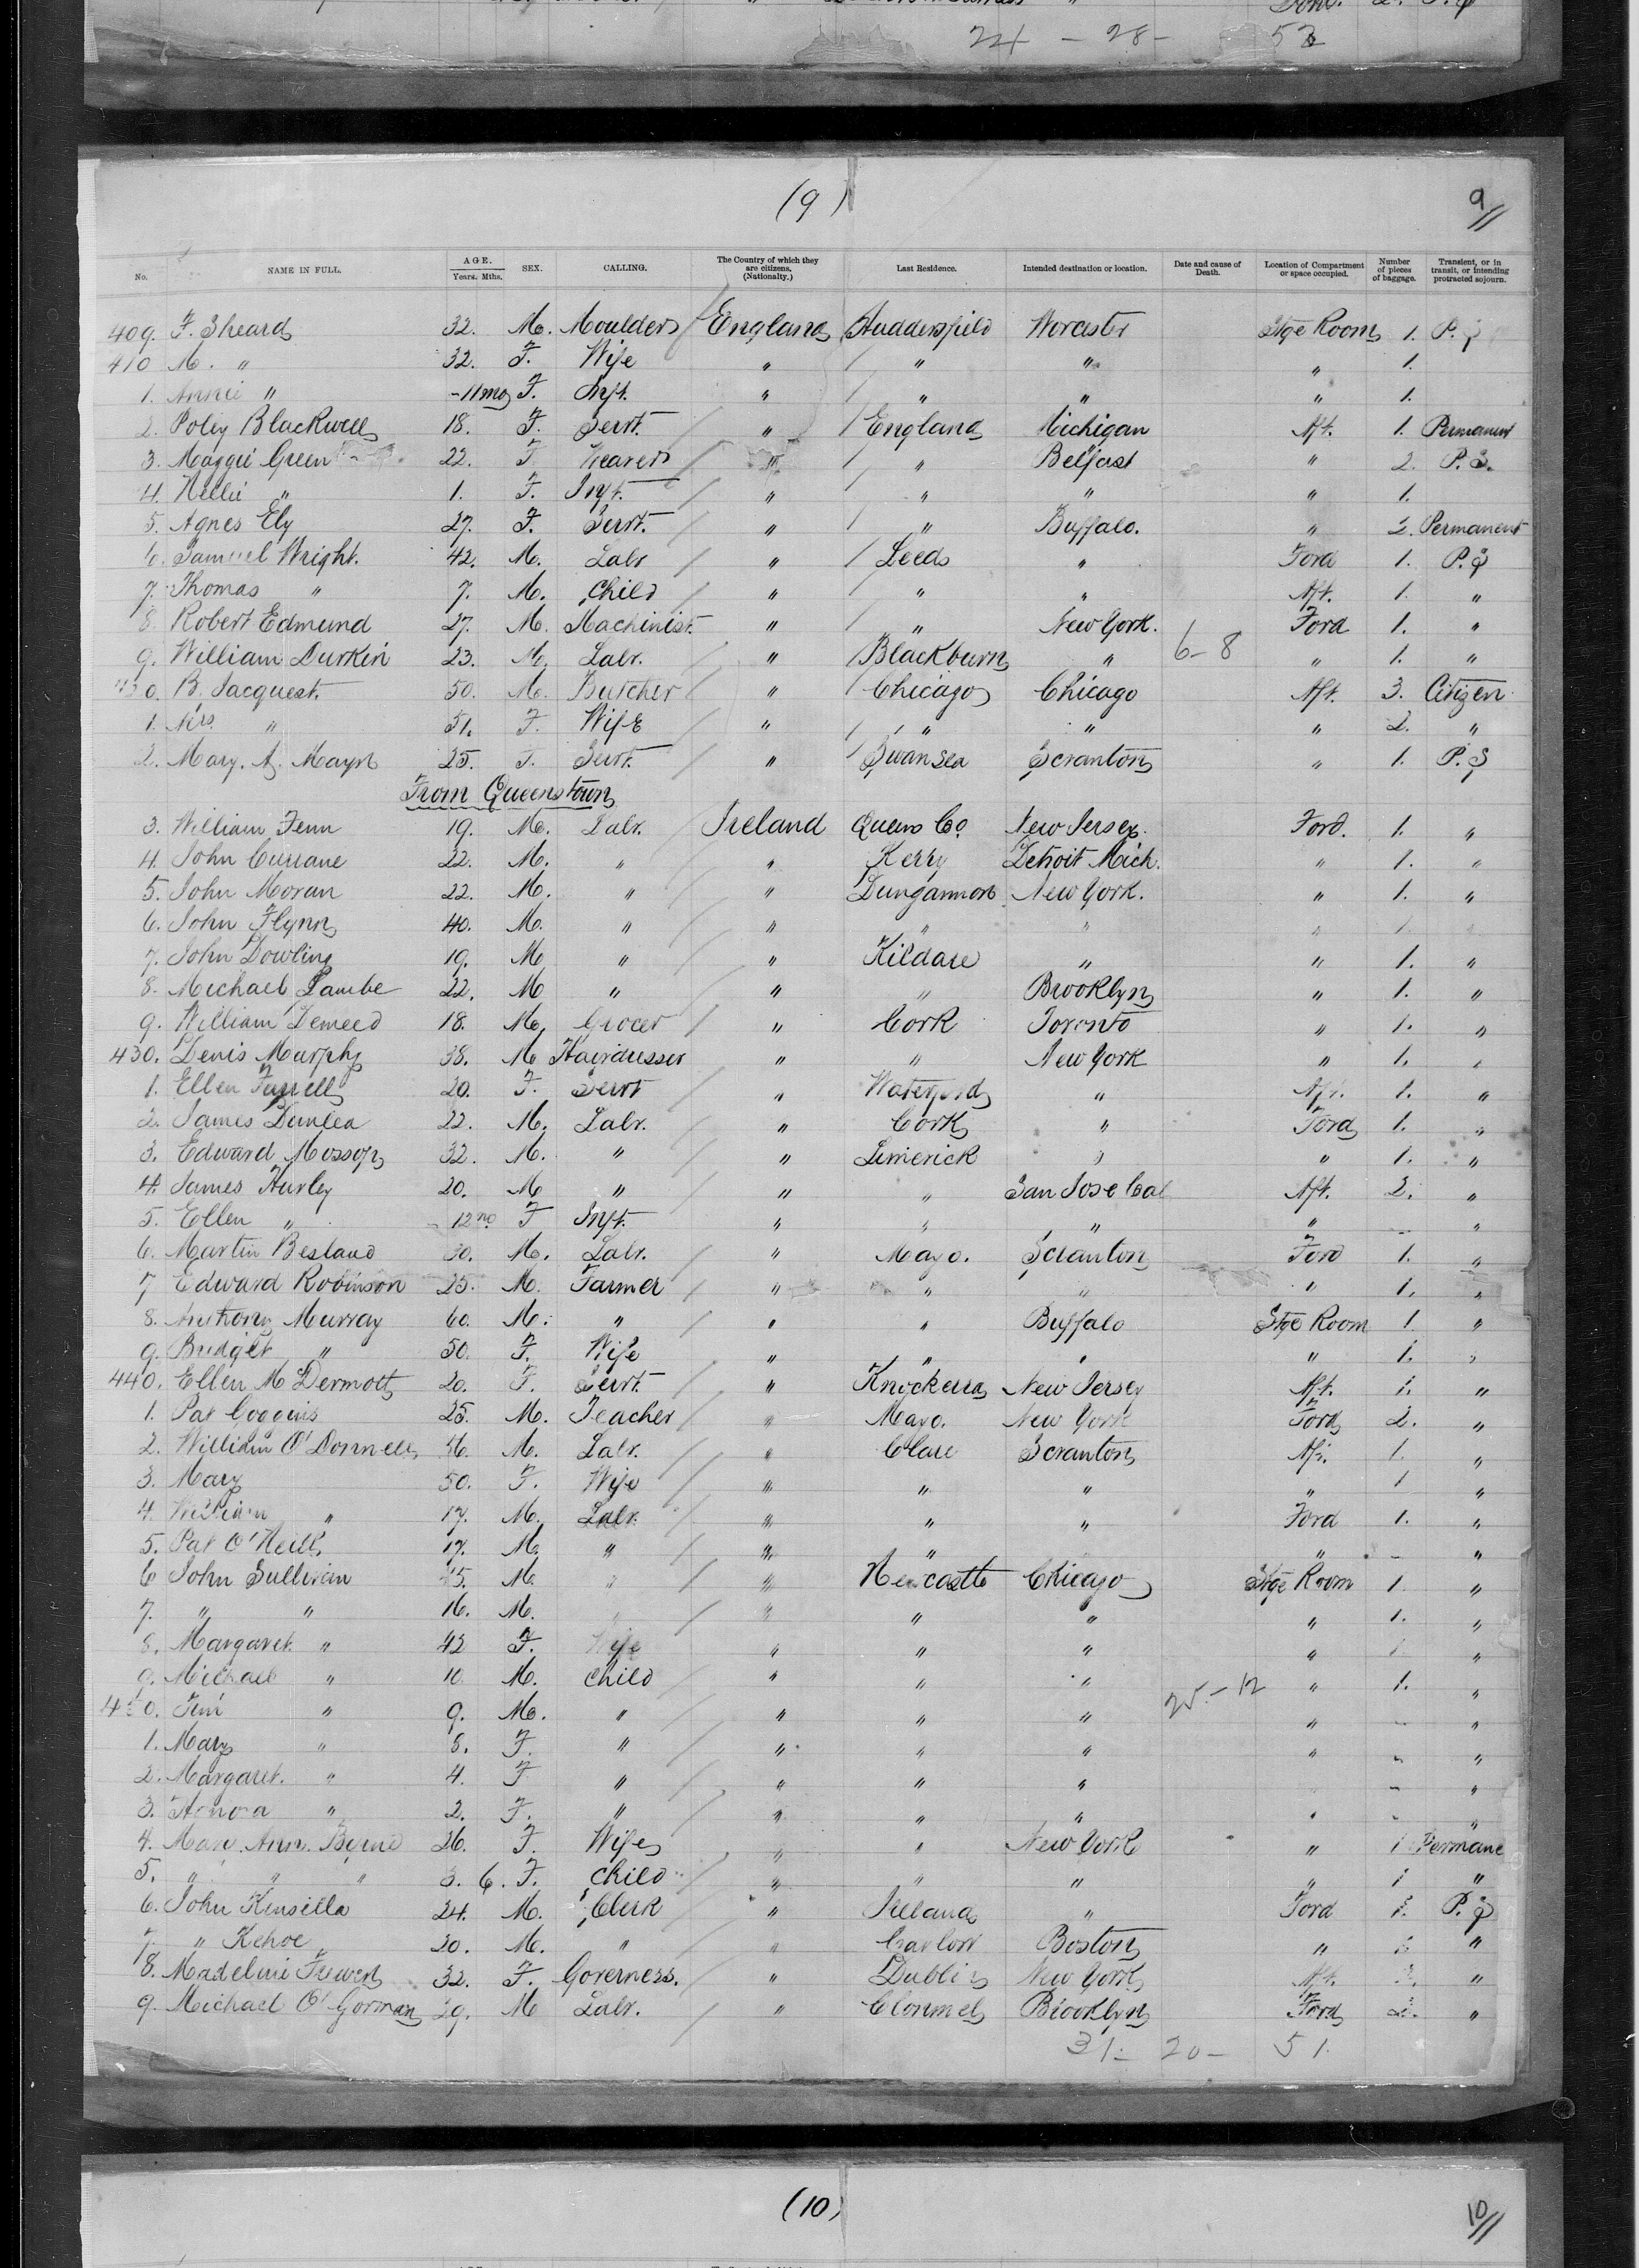 24 - 28 - 52
(9)
9//
No. NAME IN FULL. AGE. Years. Mths. SEX. CALLING. The Country of which they are citizens, (Nationality.) Last Residence. Intended destination or location. Date and cause of Death. Location of Compartment or space occupied. Number of pieces of baggage. Transient, or in transit, or intending protracted sojourn.
409. F. Sheard 32. M. Moulder England Huddersfield Worcester Stge Room 1. P.S
410 M. " 32. F. Wife " " " " 1.
1. Annie " -11mo F. Inft. " " " " 1.
2. Polly Blackwell 18. F. Servt. " England Michigan Aft. 1. Permanent
3. Maggie Green 22. F. Weaver " " Belfast " 2. P.S.
4. Nellie " 1. F. Inft. " " " " 1.
5. Agnes Ely 27. F. Servt. " " Buffalo. " 2. Permanent
6. Samuel Wright. 42. M. Labr " Leeds " Ford 1. P.S
7. Thomas " 7. M. Child " " " Aft. 1. "
8. Robert Edmund 27. M. Machinist. " " New York. Ford 1. "
9. William Durkin 23. M. Labr. " Blackburn " 6-8 " 1. "
420. B. Jacquest. 50. M. Butcher " Chicago Chicago Aft. 3. Citizen
1. Mrs. " 51. F. Wife " " " " 2. "
2. Mary. A. 25. F. Servt. " Swansea Scranton " 1. P.S
From Queenstown
3. William Fenn 19. M. Labr. Ireland Queens Co. New Jersey. Ford. 1. "
4. John Currane 22. M. " " Kerry Detroit Mich. " 1. "
5. John Moran 22. M. " " Dungannon New York. " 1. "
6. John Flynn 40. M. " " " " " 1. "
7. John Dowling 19. M " " Kildare " " 1. "
8. Michael Lambe 22. M " " " Brooklyn " 1. "
9. William 18. M. Grocer " Cork Toronto " 1. "
430. Denis Murphy 38. M Hairdresser " " New York " 1. "
1. Ellen Farrell 20. F. Servt " Waterford " Aft. 1. "
2. James Dunlea 22. M. Labr. " Cork " Ford 1. "
3. Edward Mossop 32. M. " " Limerick " " 1. "
4. James Hurley 20. M " " " San Jose Cal Aft. 2. "
5. Ellen " 12 mo F Inft. " " " " - "
6. Martin Besland 30. M. Labr. " Mayo. Scranton Ford 1. "
7 Edward Robinson 25. M. Farmer " " " " 1. "
8. Anthony Murray 60. M. " " " Buffalo Stge Room 1 "
9. Bridget " 50. F. Wife " " " " 1. "
440. Ellen McDermott 20. F. Servt. " Knockerra New Jersey Aft. 1. "
1. Pat Goggins 25. M. Teacher " Mayo. New York Ford 2. "
2. William O'Donnell M. Labr. " Clare Scranton Aft. 1. "
3. Mary 50. F. Wife " " " " 1 "
4. William " 17. M. Labr. " " " Ford 1. "
5. Pat O'Neill 17. M. " " " " - "
6 John Sullivan 45. M. " " Newcastle Chicago Stge Room 1 "
7. " " 16. M. " " " " " 1. "
8. Margaret " 42 F. Wife " " " " 1 "
9. Michael " 10 M. Child " " " 25 - 12 " 1. "
450. Tim " 9. M. " " " " " - "
1. Mary " 5. F. " " " " " - "
2. Margaret. " 4. F " " " " - "
3. Honora " 2. F. " " " " " - "
4. Mary Ann Byrne 26. F. Wife " " New York " 1 Permane
5. " " " 3. 6. F. Child " " " " 1 "
6. John Kinsella 24. M. Clerk " Ireland " Ford 1. P.S
7. " Kehoe 20. M. " " Carlow Boston " 1. "
8. Madeline 32. F. Governess. " Dublin New York Aft. "
9. Michael O'Gorman 29. M Labr. " Clonmel Brooklyn Ford 2. "
31- 20- 51.
(10)
10//